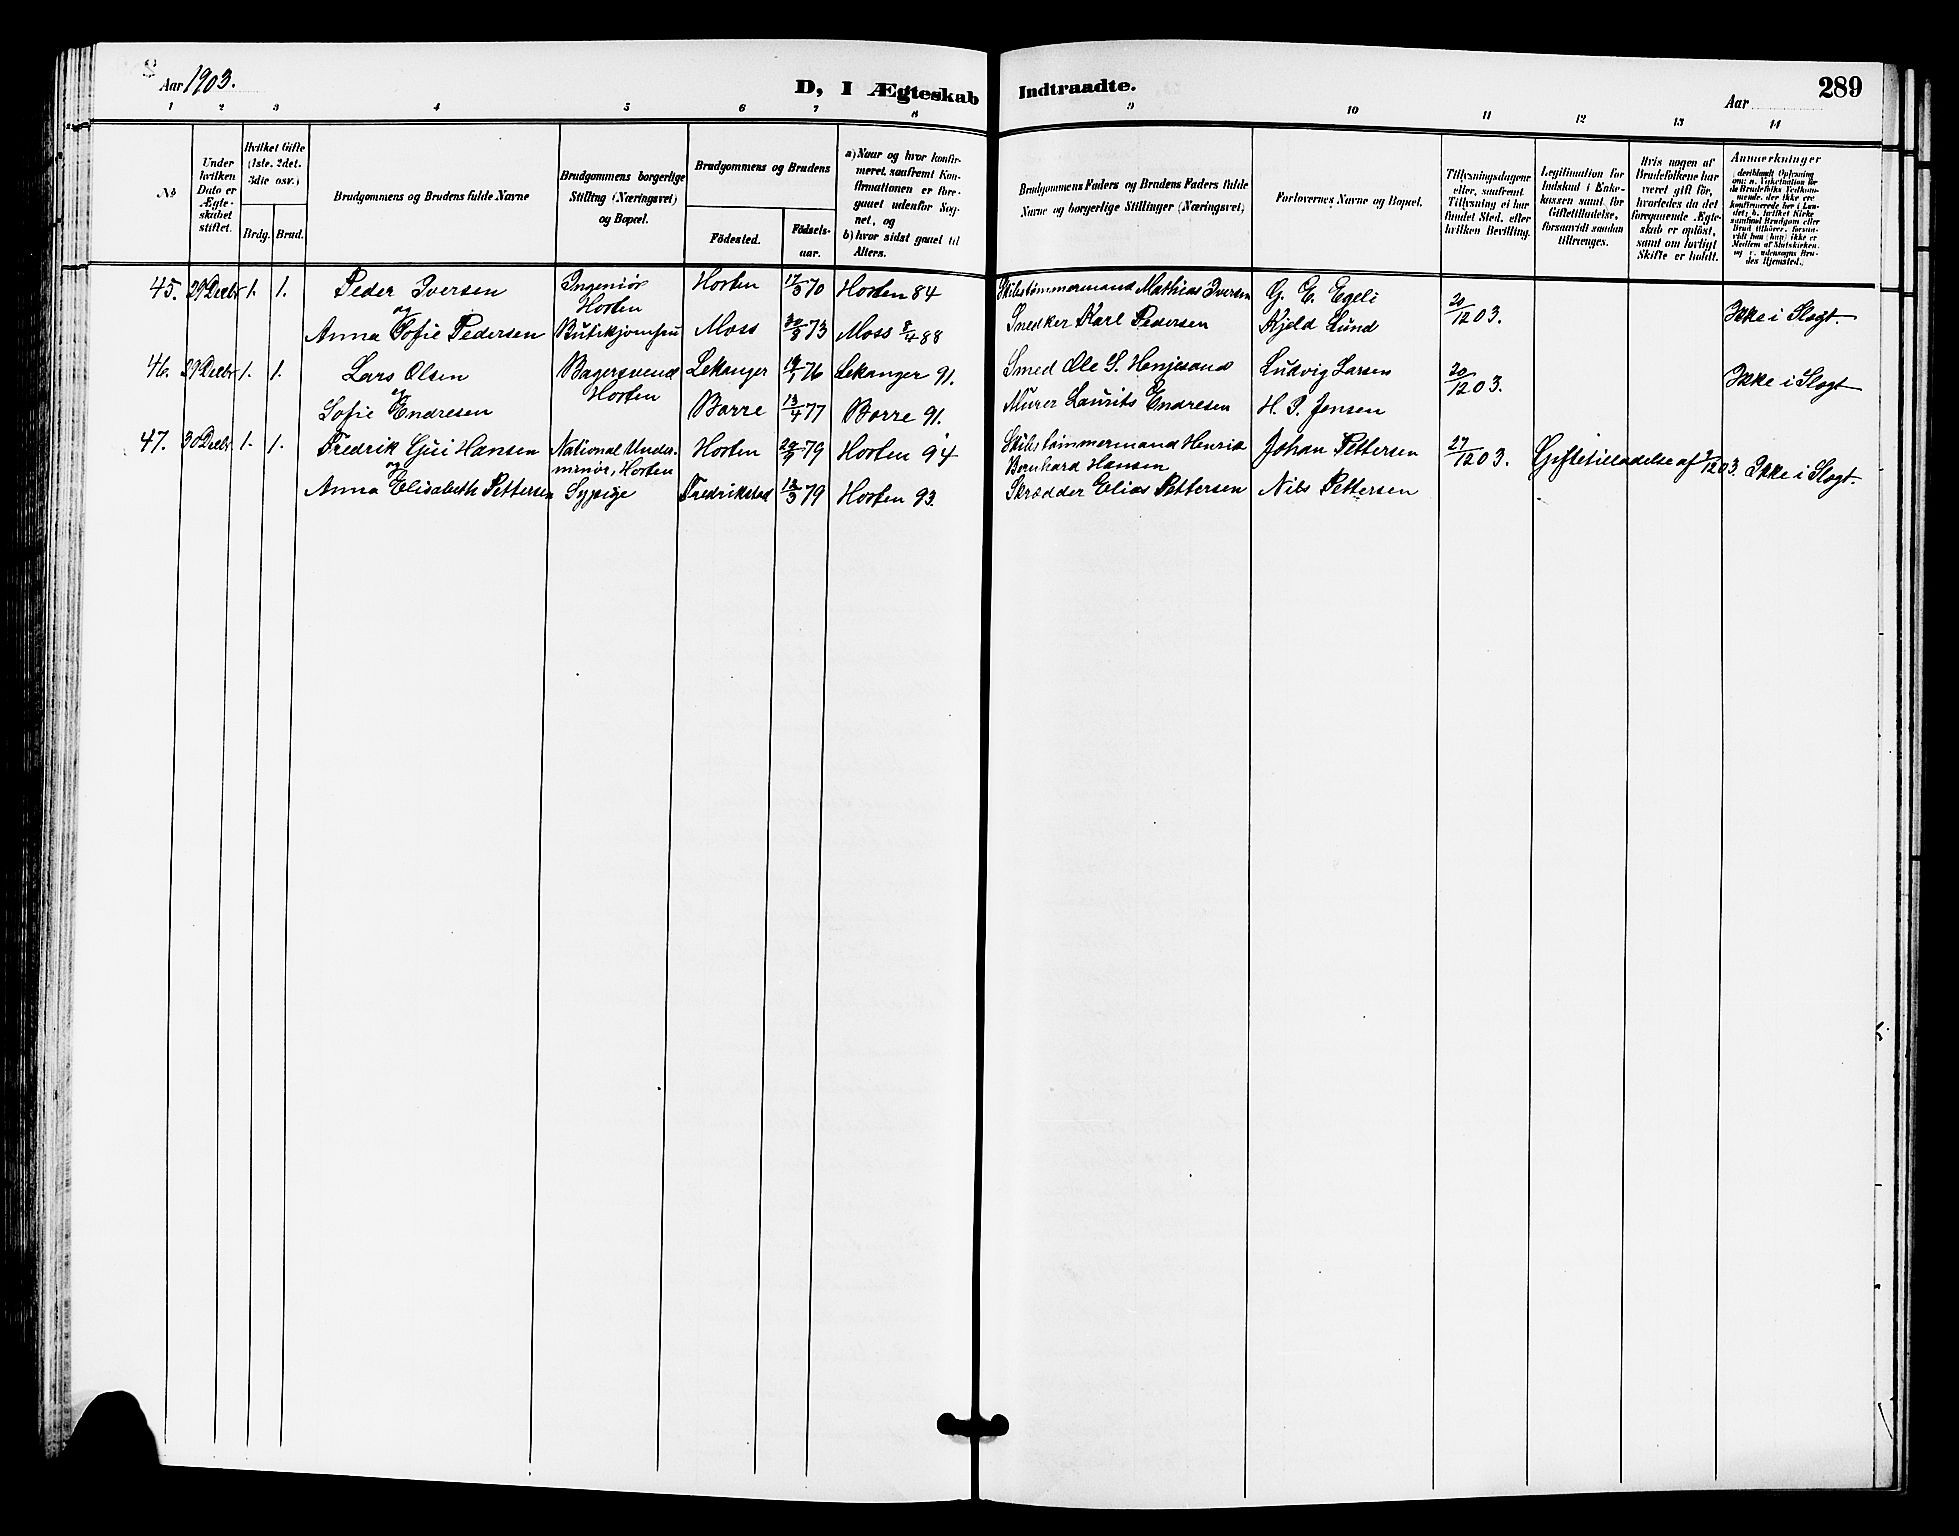 Aar 1903.
D, I Ægteskab Indtraadte.
Aar
289
1 2 3 4 5 6 7 8 9 10 11 12 13 14
No
Under hvilken Dato er Ægte-skabet stiftet.
Hvilket Gifte (1ste, 2det, 3die osv.)
Brdg. Brud.
Brudgommens og Brudens fulde Navne
Brudgommens borgerlige Stilling (Næringsvei) og Bopæl.
Brudgommens og Brudens
Födested.
Födsels-aar.
a) Naar og hvor konfir-meret, saafremt Kon-firmationen er fore-gaaet udenfor Sog-net, og
b) hvor sidst gaaet til Alters.
Brudgommens Faders og Brudens Faders fulde Navne og borgerlige Stillinger (Næringsvei)
Forlovernes Navne og Bopæl.
Tillysningsdagene eller, saafremt Tillysning ei har fundet Sted, efter hvilken Bevilling.
Legitimation for Indskud i Enke-kassen samt for Giftetilladelse, forsaavidt saadan tiltrænges.
Hvis nogen af Brudefolkene har været gift för, hvorledes da det foregaaende Ægte-skab er oplöst, samt om lovligt Skifte er holdt.
Anmærkninger
45. 29 Decbr 1. 1. Peder Iversen Ingeniör Horten Horten 17/3 70 Horten 84 Skibstömmermand Mathias Iversen G. E. Egeli 20/12 03. Ikke i Slægt.
og
Anna Sofie Pedersen Butikjomfru Moss 30/3 73 Moss 8/4 88 Snedker Karl Pedersen Kjeld Lund
46. 29 Decbr 1. 1. Lars Olsen Bagersvend Horten Lekanger 19/1 76 Lekanger 91. Smed Ole S. Henjesand Ludvig Larsen 20/12 03. Ikke i Slægt
og
Sofie Endresen Borre 13/4 77 Borre 91. Murer Laurits Endresen H. P. Jensen
47. 30 Decbr 1. 1. Fredrik Gjui Hansen National Under-minör, Horten Horten 79 Horten 94 Skibstömmermand Henrik Bernhard Hansen Johan Pettersen 27/12 03. Giftetilladelse af /12 03. Ikke i Slægt.
og
Anna Elisabeth Pettersen Sypige Fredrikstad 12/3 79 Horten 93. Skrædder Elias Pettersen Nils Pettersen